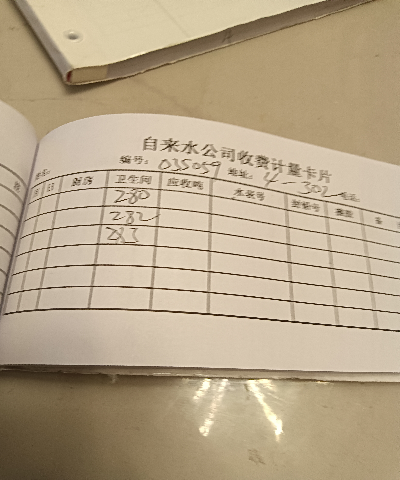 自来水公司收费计量卡片
编号: 035059 地址: 4-302 电话:
月 日 厨房 卫生间 应收吨 水表号 封签号 换表 备
280
282
283